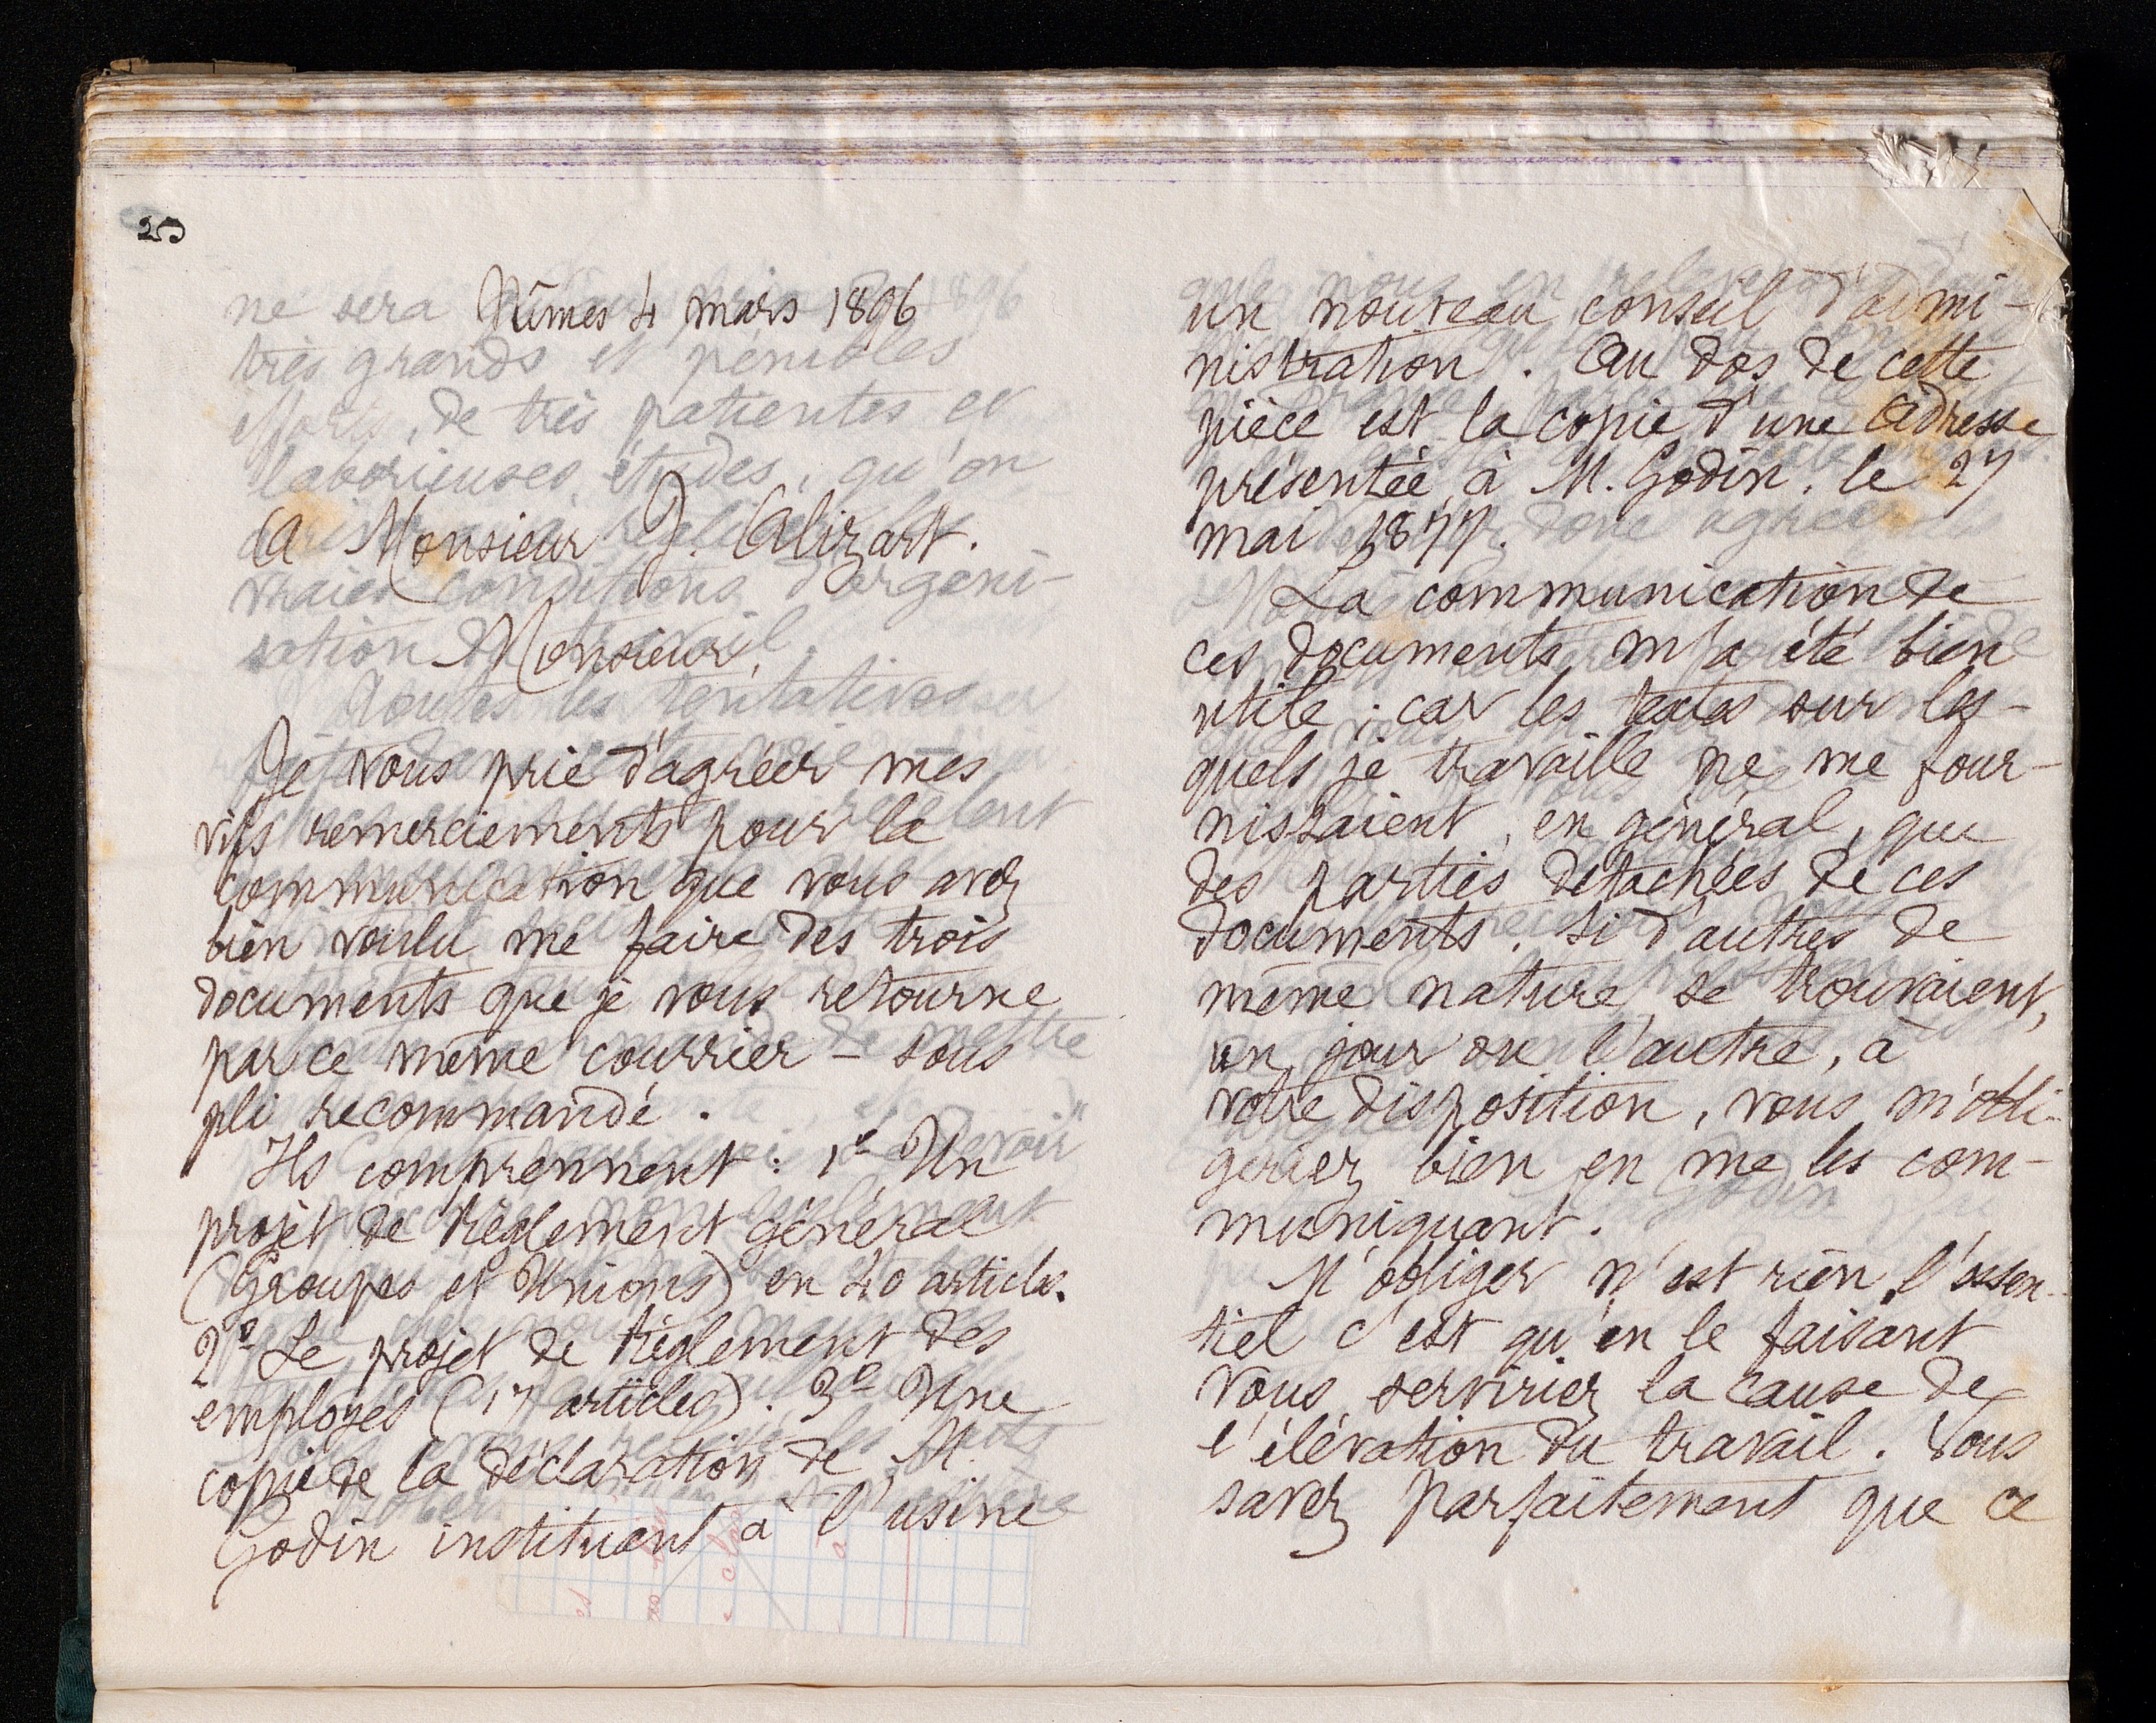 25
Nîmes 4 mars 1896
A Monsieur J. Alizart.
Monsieur,
Je vous prie d'agréer mes
vifs remerciements pour la
communication que vous avez
bien voulu me faire des trois
documents que je vous retourne
par ce même courrier - sous
pli recommandé.
Ils comprennent : 1º Un
projet de règlement général
(Groupes et Unions) en 40 articles.
2º Le projet de règlement des
employés (17 articles). 3º Une
copie de la déclaration de M.
Godin instituant à l'usine
un nouveau conseil d'admi-
nistration. Au dos de cette
pièce est la copie d'une adresse
présentée à M. Godin, le 27
mai 1877.
La communication de
ces documents m'a été bien
utile ; car les textes sur les-
quels je travaille ne me four-
nissaient, en général, que
des parties détachées de ces
documents. Si d'autres de
même nature se trouvaient,
un jour ou l'autre, à
votre disposition, vous m'obli-
geriez bien en me les com-
muniquant.
M'obliger n'est rien, l'essen-
tiel c'est qu'en le faisant
vous serviriez la cause de
l'élévation du travail. Vous
savez parfaitement que ce